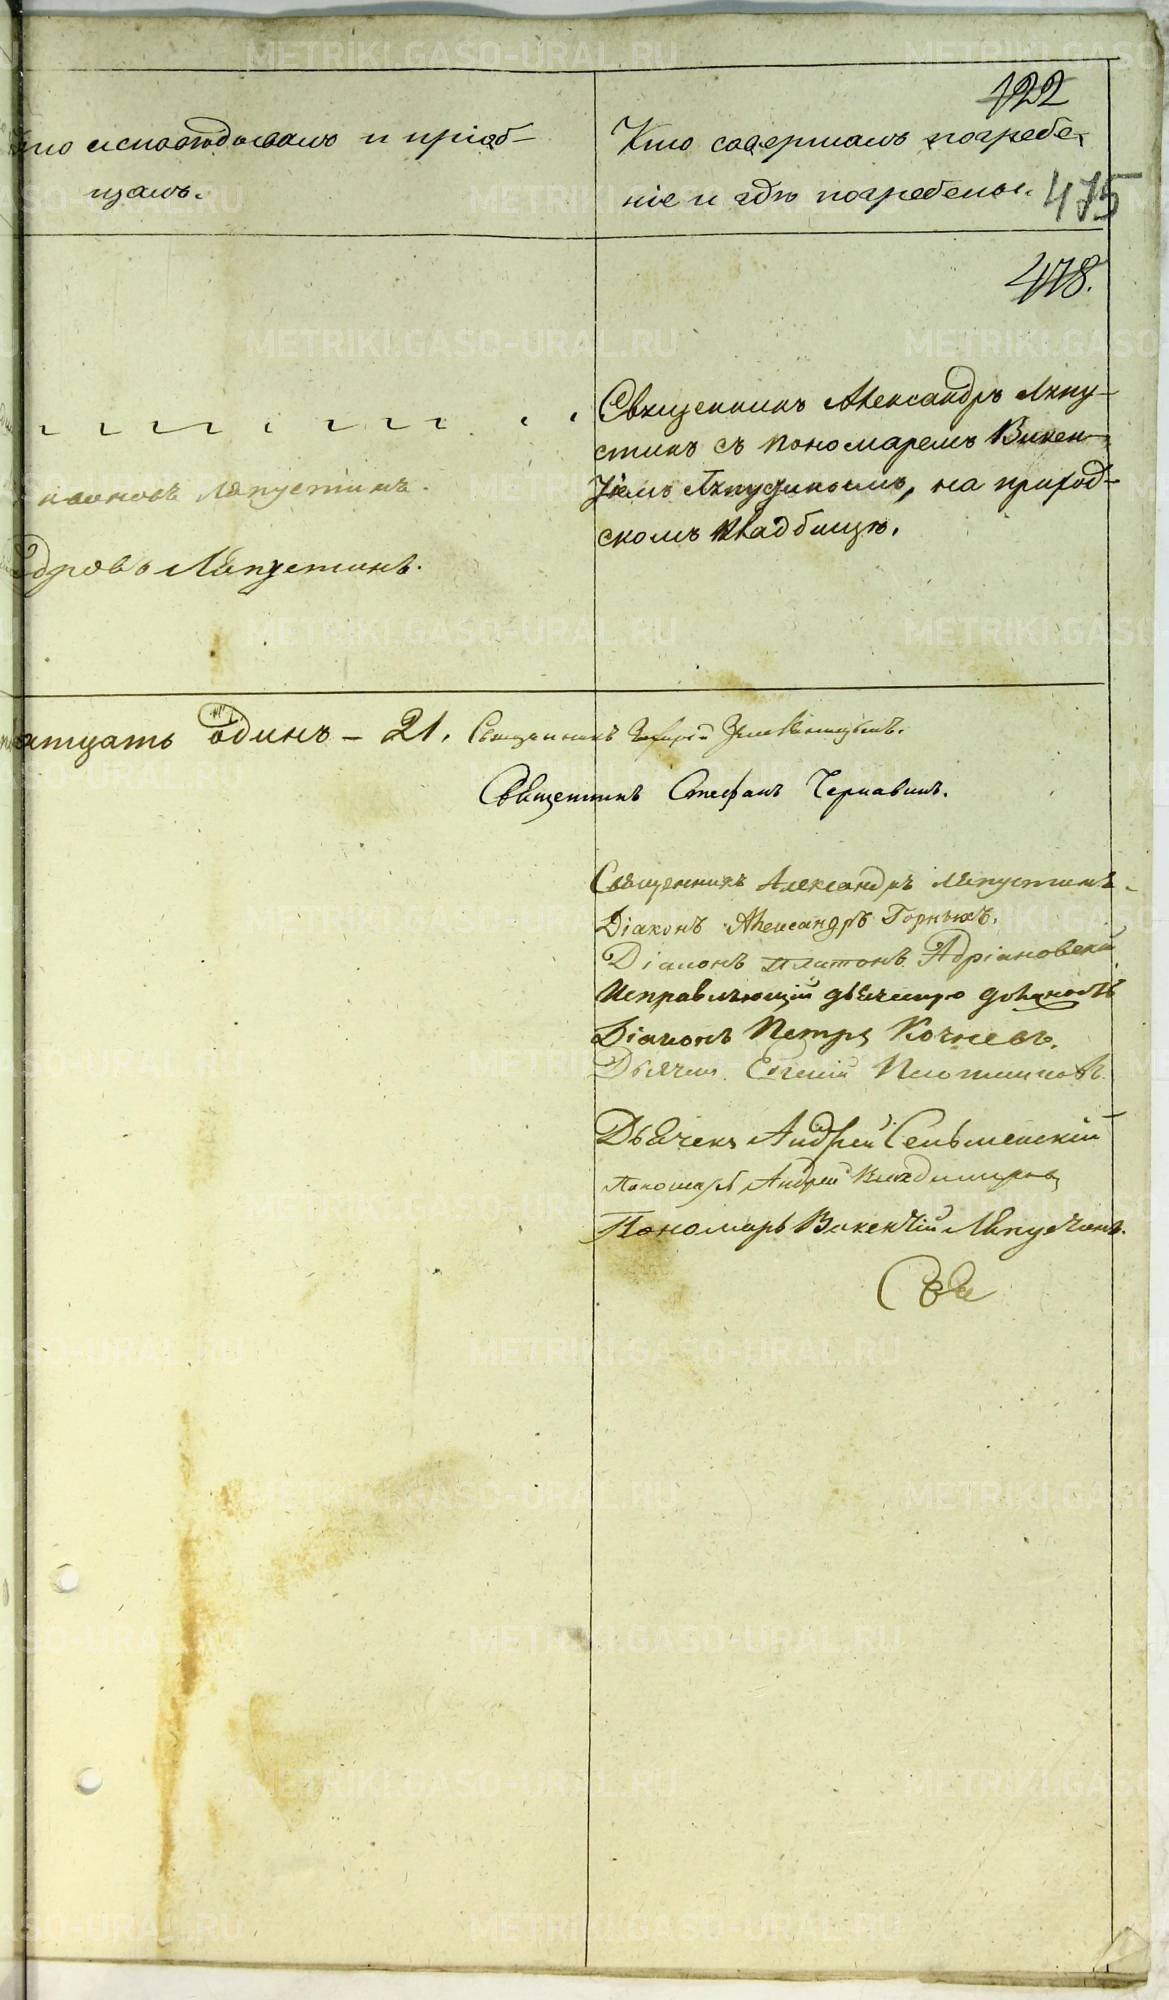 122
Кто исповѣдывалъ и пріоб-
щалъ.
Кто совершалъ погребе-
ніе и гдѣ погребены.
475
478.
Священникъ Александръ Ляпу-
стинъ съ пономаремъ Викен-
тіемъ Ляпустинымъ, на приход-
скомъ кладбищѣ.
Ляпустинъ.
Ляпустинъ.
одинъ – 21. Священникъ
Священникъ Стефанъ Чернавинъ.
Священникъ Александръ Ляпустинъ.
Діаконъ Александръ Горныхъ.
Діаконъ Платонъ Адріановскій
Исправляющій дьяческую должность
Діаконъ Петръ Кочневъ.
Дьячекъ Евгеній Плотниковъ.
Дьячекъ Андрей Сельменскій
Пономарь Андрей Владимировъ
Пономарь Викентій Ляпустинъ.
METRIKI.GASO-URAL.RU